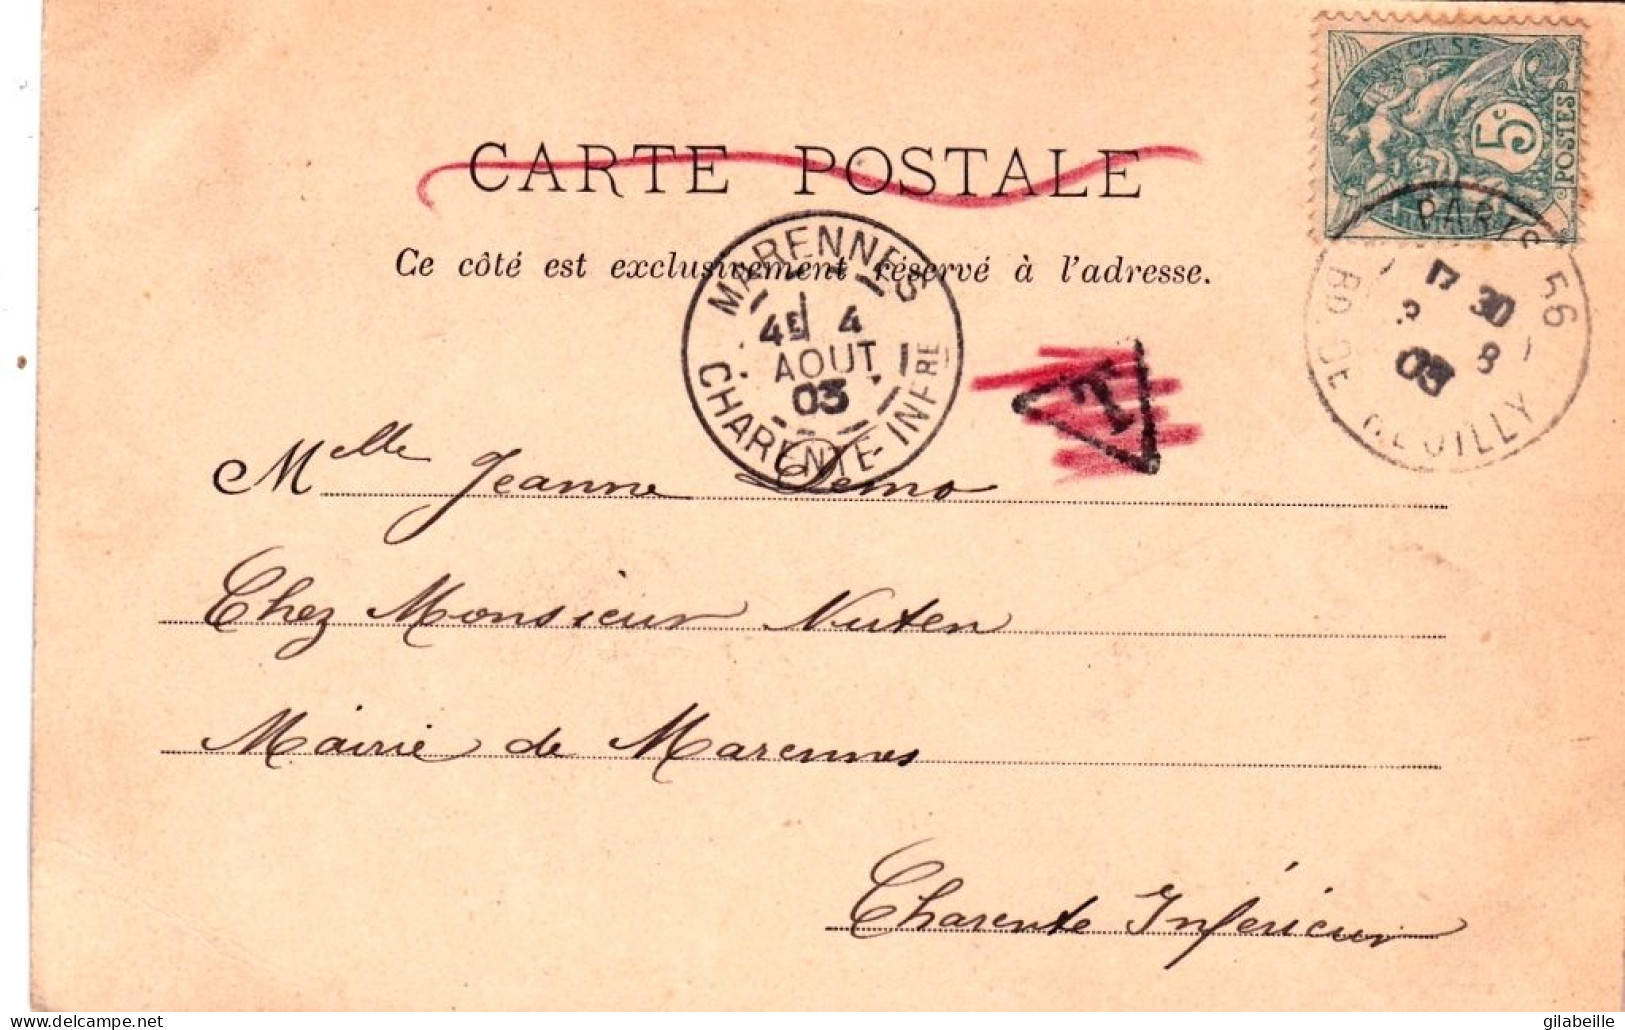 CARTE POSTALE
Ce côté est exclusivement réservé à l'adresse.
FRANÇAISE
5c
POSTES
PARIS 56
17 30
8
03
BD DE REUILLY
MARENNES
4E 4
AOUT
03
CHARENTE-INFRE
T
Melle Jeanne Demo
Chez Monsieur Nuten
Mairie de Marennes
Charente Inférieur
gilabeille